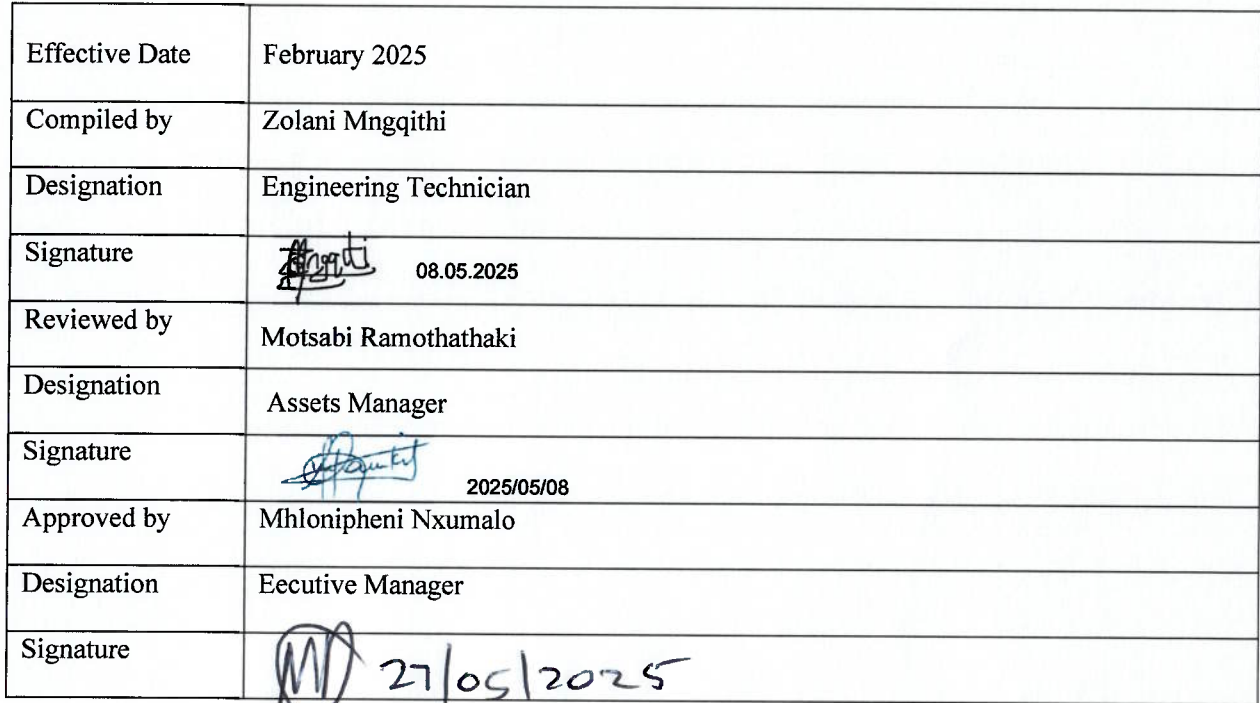 Effective Date February 2025
Compiled by Zolani Mngqithi
Designation Engineering Technician
Signature 08.05.2025
Reviewed by Motsabi Ramothathaki
Designation Assets Manager
Signature 2025/05/08
Approved by Mhlonipheni Nxumalo
Designation Eecutive Manager
Signature 27/05/2025